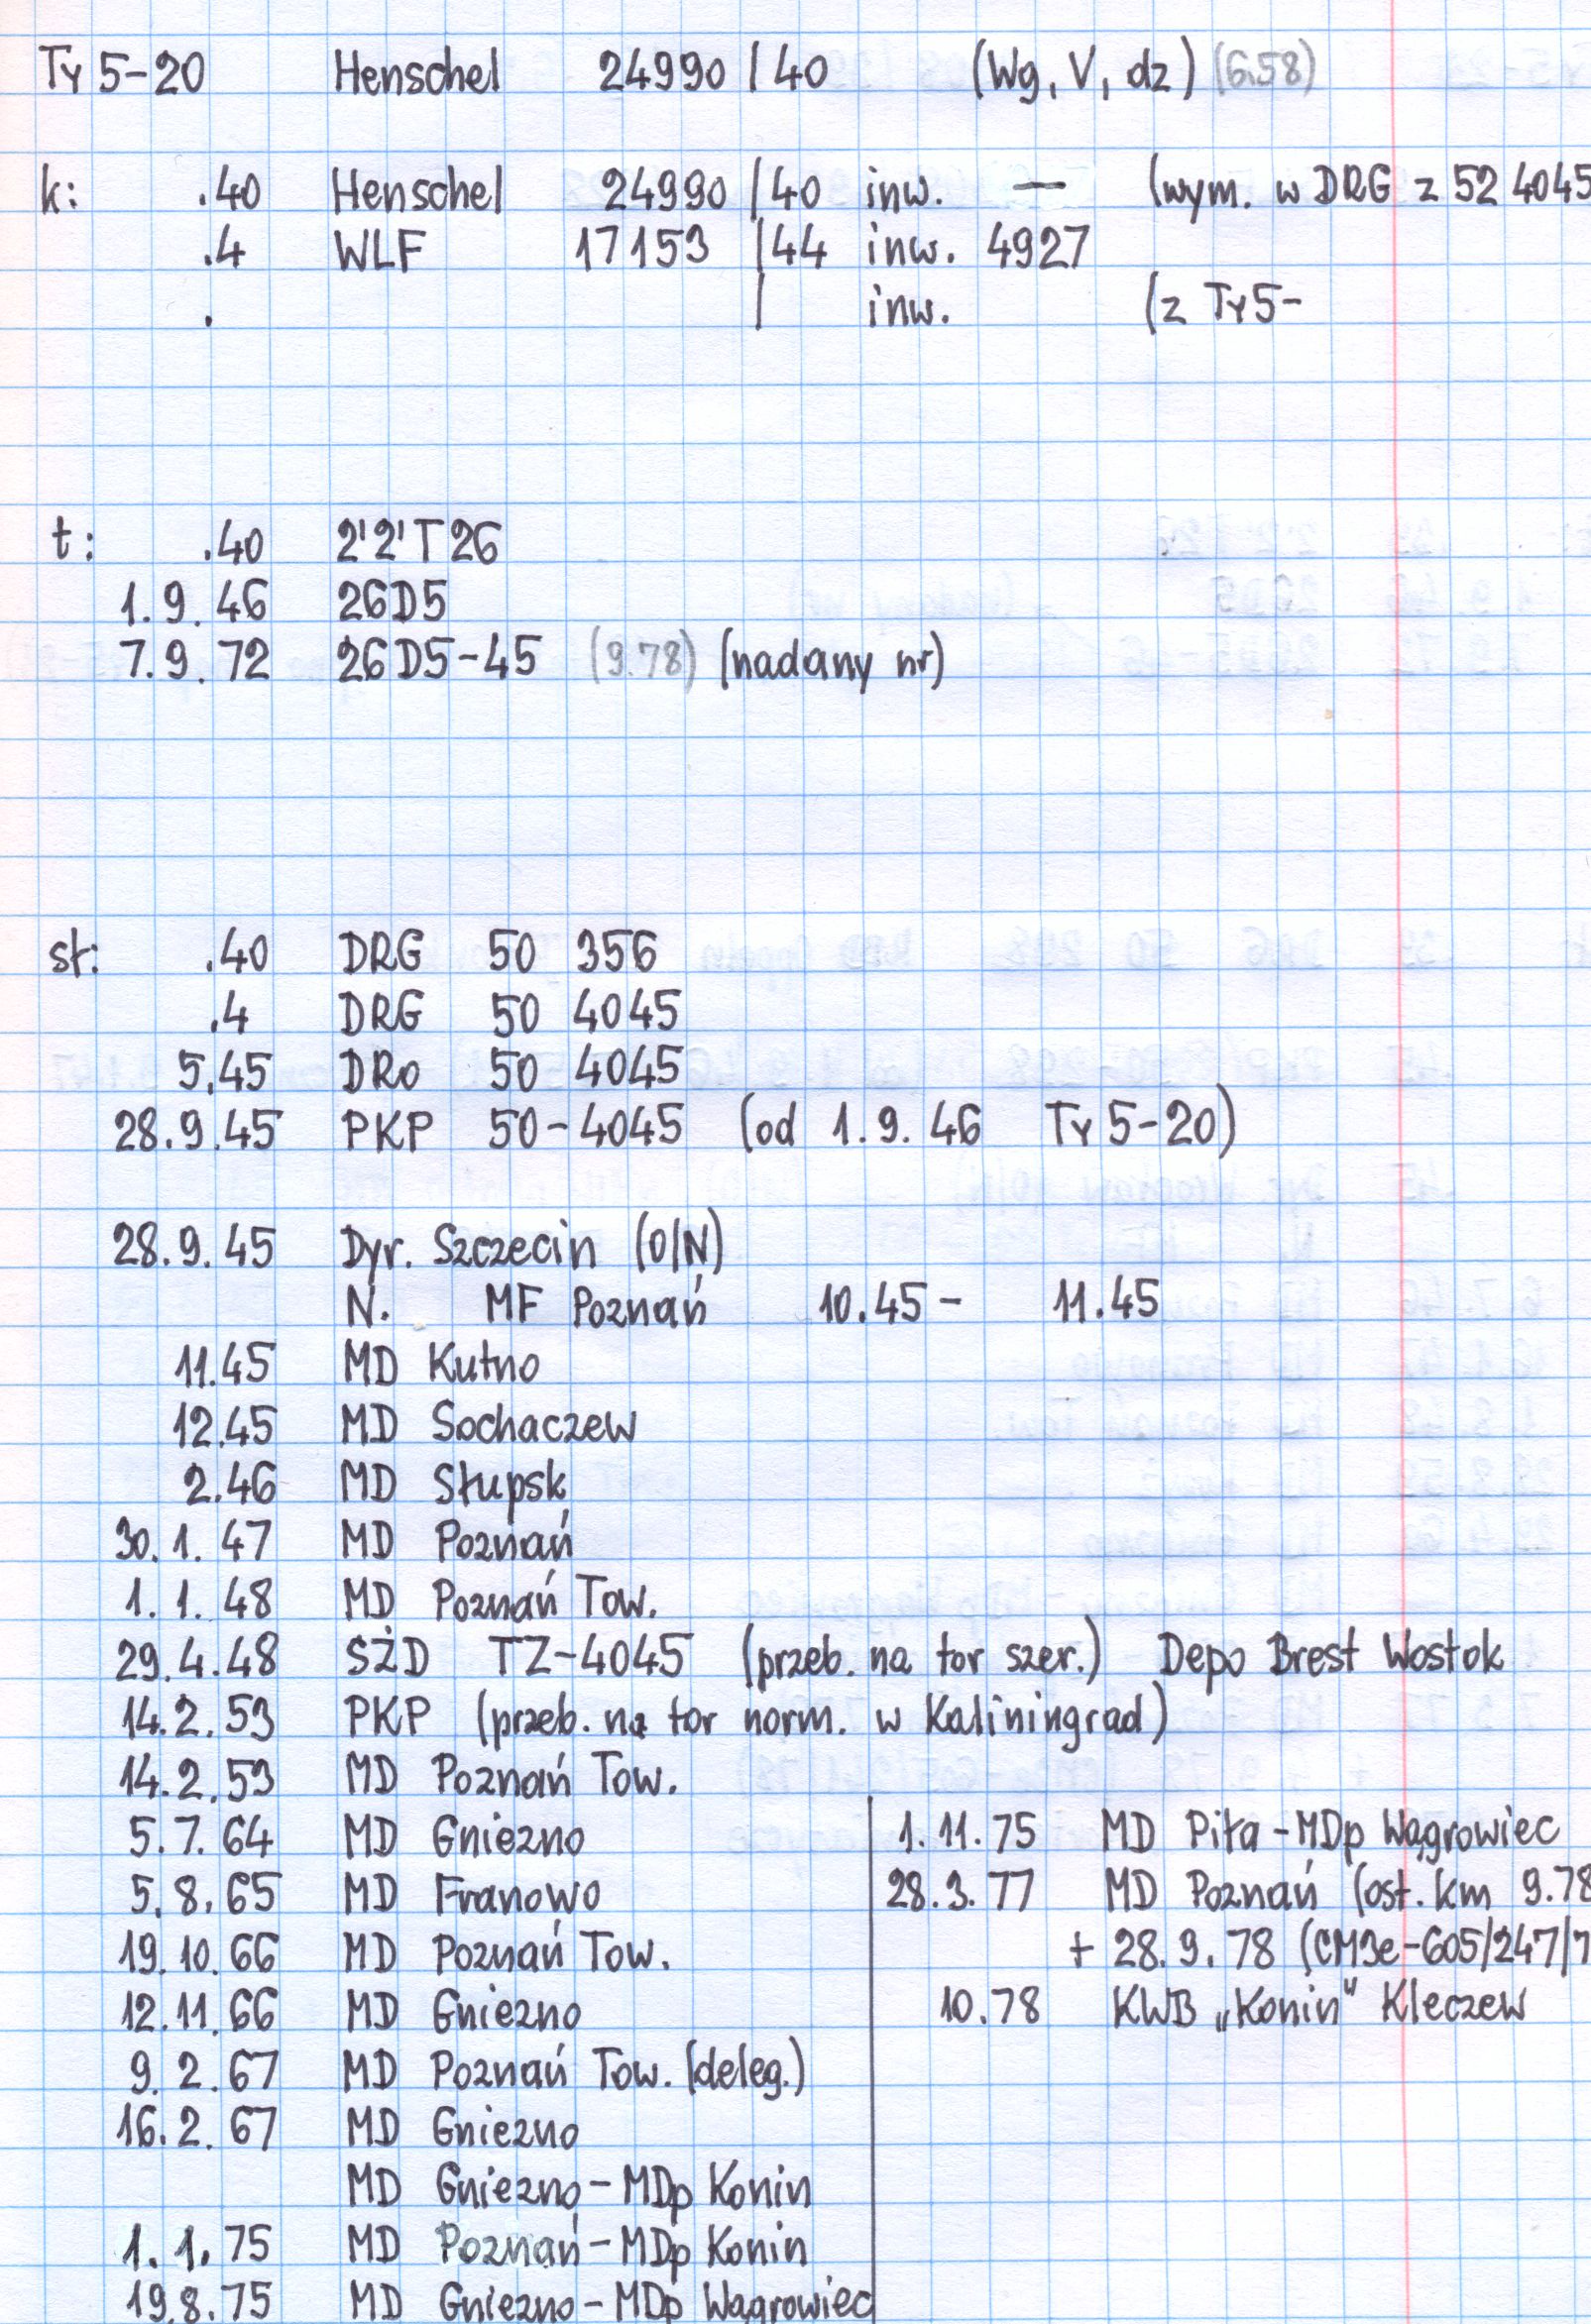 Ty 5-20 Henschel 24990 / 40 (Wg, V, dz) (6.58)
k: .40 Henschel 24990 / 40 inw. — (wym. w DRG z 52 4045
.4 WLF 17153 / 44 inw. 4927
. / inw. (z Ty5-
t: .40 2'2'T26
1.9.46 26D5
7.9.72 26D5-45 (9.78) (nadany nr)
sł: .40 DRG 50 356
.4 DRG 50 4045
5.45 DRo 50 4045
28.9.45 PKP 50-4045 (od 1.9.46 Ty5-20)
28.9.45 Dyr. Szczecin (O/N)
N. MF Poznań 10.45 - 11.45
11.45 MD Kutno
12.45 MD Sochaczew
2.46 MD Słupsk
30.1.47 MD Poznań
1.1.48 MD Poznań Tow.
29.4.48 SŻD TZ-4045 (przeb. na tor szer.) Depo Brest Wostok
14.2.53 PKP (przeb. na tor norm. w Kaliningrad)
14.2.53 MD Poznań Tow.
5.7.64 MD Gniezno
5.8.65 MD Franowo
19.10.66 MD Poznań Tow.
12.11.66 MD Gniezno
9.2.67 MD Poznań Tow. (deleg.)
16.2.67 MD Gniezno
MD Gniezno - MDp Konin
1.1.75 MD Poznań - MDp Konin
19.8.75 MD Gniezno - MDp Wągrowiec
1.11.75 MD Piła - MDp Wągrowiec
28.3.77 MD Poznań (ost. km 9.78
+ 28.9.78 (CM3e-605/247/7
10.78 KWB „Konin" Kleczew